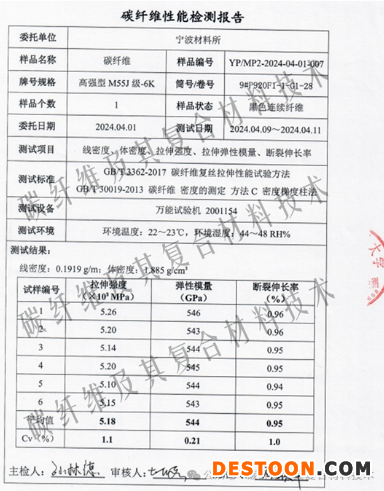 碳纤维性能检测报告
委托单位 宁波材料所
样品名称 碳纤维 样品编号 YP/MP2-2024-04-01-007
牌号规格 高强型 M55J 级-6K 筒号/卷号 9#F920F1-1-G1-28
样品个数 1 样品状态 黑色连续纤维
委托日期 2024.04.01 测试日期 2024.04.09～2024.04.11
测试项目 线密度、体密度、拉伸强度、拉伸弹性模量、断裂伸长率
测试标准 GB/T 3362-2017 碳纤维复丝拉伸性能试验方法
GB/T 30019-2013 碳纤维 密度的测定 方法 C 密度梯度柱法
测试设备 万能试验机 2001154
测试环境 环境温度：22～23℃，环境湿度：44～48 RH%
测试结果：
线密度：0.1919 g/m；体密度：1.885 g/cm³
试样编号 拉伸强度 弹性模量 断裂伸长率
(×10³ MPa) (GPa) (%)
1 5.26 546 0.96
2 5.20 543 0.96
3 5.14 544 0.95
4 5.20 545 0.95
5 5.10 544 0.94
6 5.15 543 0.95
平均值 5.18 544 0.95
Cv（%） 1.1 0.21 1.0
主检人： 审核人：
碳纤维及其复合材料技术
碳纤维及其复合材料技术
DESTOON.COM